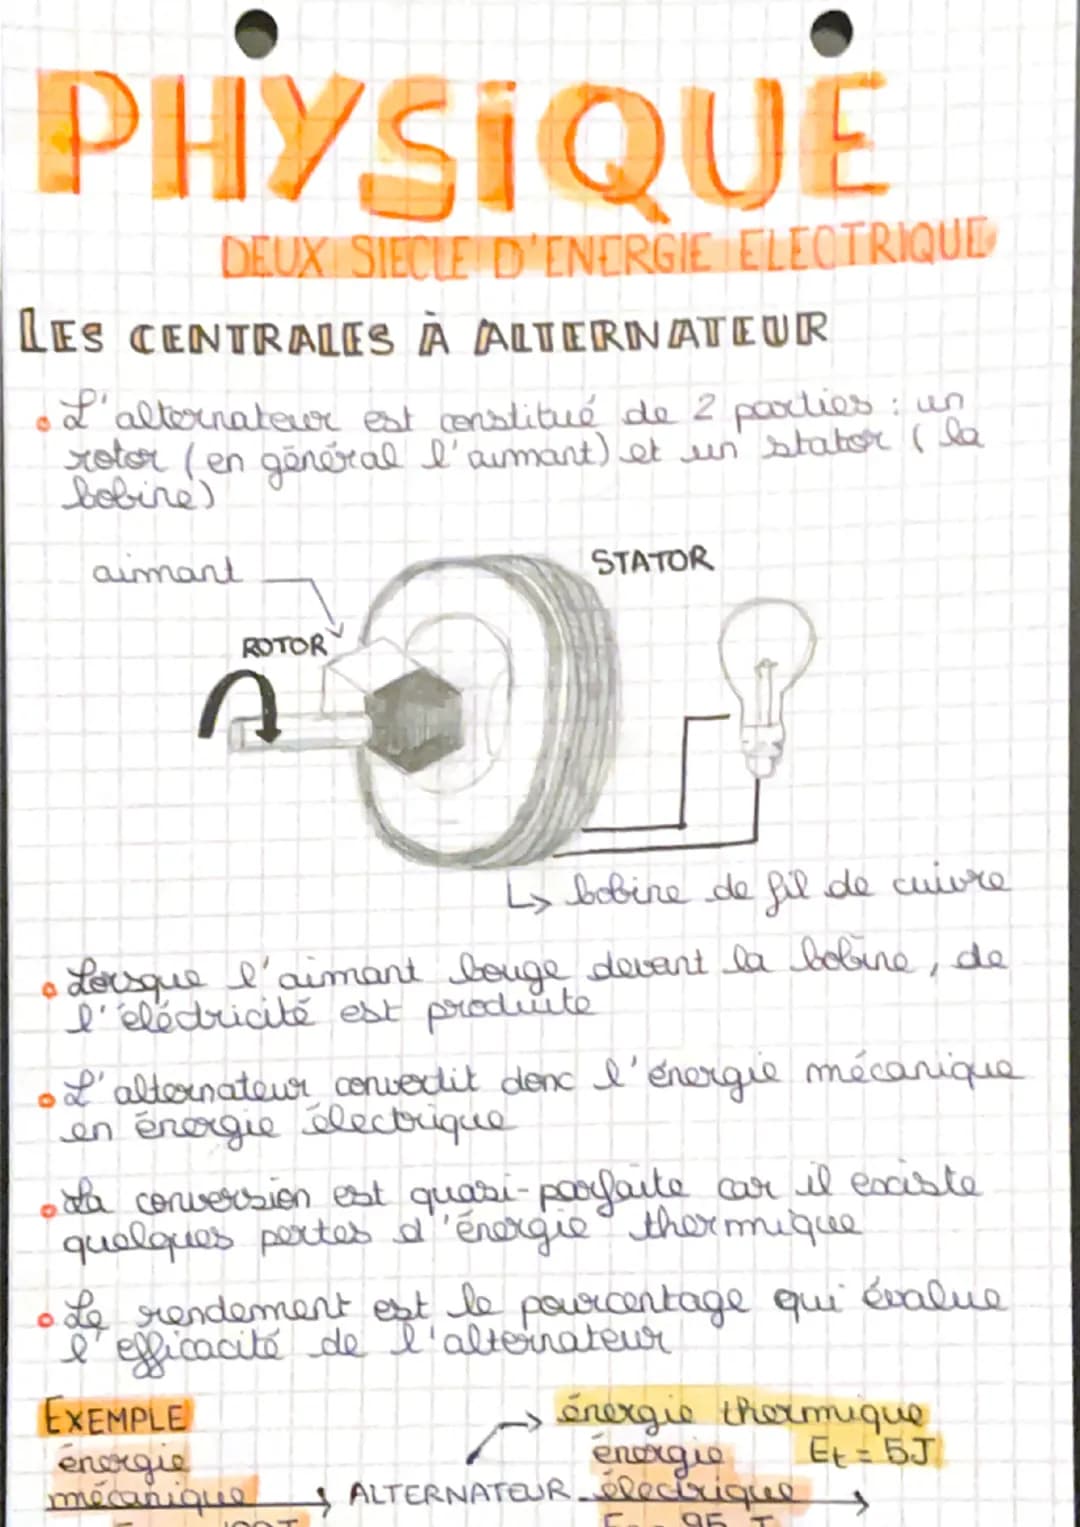 PHYSiQUE
DEUX SIECLE D'ENERGIE ELECTRIQUE
LES CENTRALES À ALTERNATEUR
L'alternateur est constitué de 2 parties : un
rotor (en général l'aimant) et un stator (la
bobine)
aimant
STATOR
ROTOR
↳ bobine de fil de cuivre
Lorsque l'aimant bouge devant la bobine, de
l'électricité est produite
L'alternateur convertit donc l'énergie mécanique
en énergie électrique
La conversion est quasi-parfaite car il existe
quelques pertes d'énergie thermique
Le rendement est le pourcentage qui évalue
l'efficacité de l'alternateur
EXEMPLE
énergie thermique
Et = 5J
énergie
mécanique
ALTERNATEUR
énergie
électrique